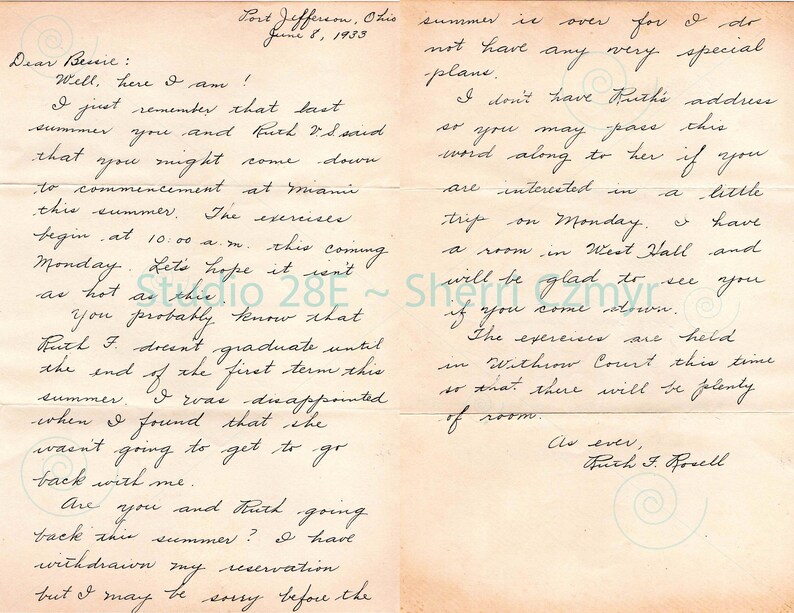 Port Jefferson, Ohio
June 8, 1933
Dear Bessie:
Well, here I am!
I just remember that last
summer you and Ruth V. S said
that you might come down
to commencement at Miami
this summer. The exercises
begin at 10:00 a.m. this coming
Monday. Let's hope it isn't
as hot as this.
You probably know that
Ruth F. doesn't graduate until
the end of the first term this
summer. I was disappointed
when I found that she
wasn't going to get to go
back with me.
Are you and Ruth going
back this summer? I have
withdrawn my reservation
but I may be sorry before the
summer is over for I do
not have any very special
plans.
I don't have Ruth's address
so you may pass this
word along to her if you
are interested in a little
trip on Monday. I have
a room in West Hall and
will be glad to see you
if you come down.
The exercises are held
in Withrow Court this time
so that there will be plenty
of room.
As ever,
Ruth F. Rosell
Studio 28E ~ Sherri Czmyr